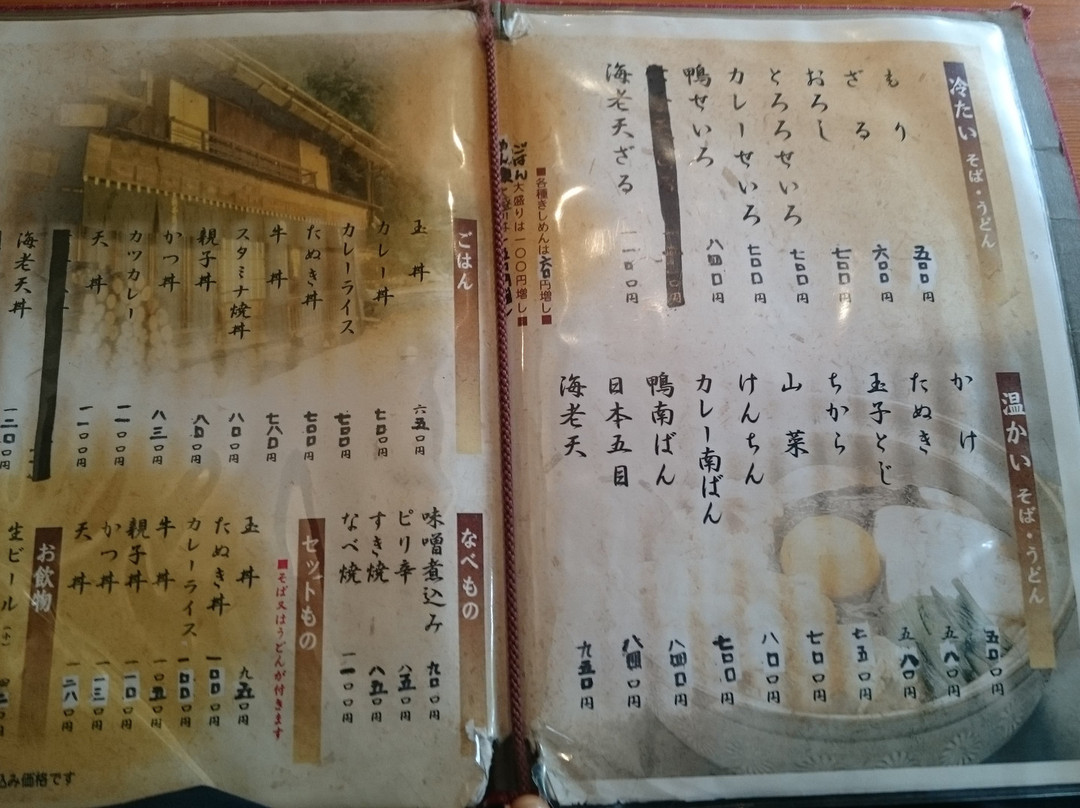 冷たい そば・うどん
もり 五〇〇円
ざる 六〇〇円
おろし 七〇〇円
とろろせいろ 七〇〇円
カレーせいろ 七〇〇円
鴨せいろ 八四〇円
海老天ざる 一一〇〇円
■各種きしめんは六〇円増し■
ごはん大盛りは一〇〇円増し■
温かい そば・うどん
かけ 五〇〇円
たぬき 五八〇円
玉子とじ 五八〇円
ちから 七五〇円
山菜 七〇〇円
けんちん 八〇〇円
カレー南ばん 七〇〇円
鴨南ばん 八四〇円
日本五目 八四〇円
海老天 九五〇円
ごはん
玉丼 六五〇円
カレー丼 七〇〇円
カレーライス 七〇〇円
たぬき丼 七〇〇円
牛丼 七八〇円
スタミナ焼丼 八〇〇円
親子丼 八〇〇円
かつ丼 八三〇円
カツカレー 一一〇〇円
天丼 一一〇〇円
海老天丼 一二〇〇円
なべもの
味噌煮込み 九〇〇円
ピリ辛 八五〇円
すき焼 八五〇円
なべ焼 一一〇〇円
セットもの
■そば又はうどんが付きます
玉丼 九五〇円
たぬき丼 一〇〇〇円
カレーライス 一〇〇〇円
牛丼 一〇五〇円
親子丼 一一〇〇円
かつ丼 一一三〇円
天丼 一二八〇円
お飲物
生ビール
込み価格です